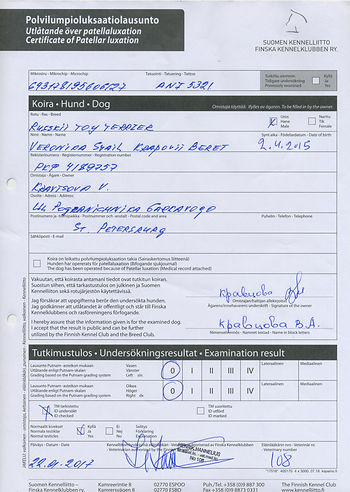 Polvilumpioluksaatiolausunto
Utlåtande över patellaluxation
Certificate of Patellar luxation
SUOMEN KENNELLIITTO
FINSKA KENNELKLUBBEN RY.
Mikrosiru - Mikrochip - Microchip
Tatuointi - Tatuering - Tattoo
Tutkittu aiemmin
Tidigare undersökning
Previously examined
Kyllä
Ja
Yes
643178195606127
ANJ 5321
Koira • Hund • Dog
Omistaja täyttää. Ifylles av ägaren. To be filled in by the owner.
Rotu - Ras - Breed
Russkii toy terrier
Uros
Hane
Male
Narttu
Tik
Female
Nimi - Namn - Name
Synt.aika - Födelsedatum - Date of birth
Veronira Smail Krapovii Beret
2.4.2015
Rekisterinumero - Registernummer - Registration number
PKF 4189757
Omistaja - Ägare - Owner
Kravtsova V.
Osoite - Adress - Address
Postinumero ja -toimipaikka - Postnummer och -anstalt - Postal code and area
Puhelin - Telefon - Telephone
St. Petersburg
Sähköposti - E-mail
Koira on leikattu polvilumpioluksaation takia (Sairaskertomus liitteenä)
Hunden har opererats för patellaluxation (Bifogande sjukjournal)
The dog has been operated because of Patellar luxation (Medical record attached)
Vakuutan, että koirasta antamani tiedot ovat tutkitun koiran.
Suostun siihen, että tarkastustulos on julkinen ja Suomen
Kennelliiton sekä rotujärjestön käytettävissä.
Jag försäkrar att uppgifterna berör den undersökta hunden.
Jag godkänner att utlåtandet är offentligt och står till Finska
Kennelklubbens och rasföreningens förfogande.
I hereby assure that the information given is for the examined dog.
I accept that the result is public and can be further
utilized by the Finnish Kennel Club and the Breed Club.
Omistajan/haltijan allekirjoitus
Ägarens/innehavarens underskrift - Signature of the owner
Кравцова В.А.
Nimenselvennys - Namnet textad - Name in block letters
Tutkimustulos • Undersökningsresultat • Examination result
Lausunto Putnam-asteikon mukaan
Utlåtande enligt Putnam-skalan
Grading based on the Putnam grading system
Vasen
Vänster
Left sin
0 I II III IV
Lateraalinen
Mediaalinen
Lausunto Putnam-asteikon mukaan
Utlåtande enligt Putnam-skalan
Grading based on the Putnam grading system
Oikea
Höger
Right dx
0 I II III IV
Lateraalinen
Mediaalinen
TM tarkistettu
ID undersökt
ID checked
TM suoritettu
ID utförd
ID marked
Normaalit kyvekset
Normala testiklar
Normal testicles
Kyllä
Ja
Yes
Ei
Nej
No
Selitys
Förklaring
Explanation
Päiväys - Datum - Date
22.01.2017
108
Kamreerintie 8
Kamrersvägen 8
02770 ESPOO
02770 ESBO
Puh./Tel. +358 (0)9 887 300
The Finnish Kennel Club